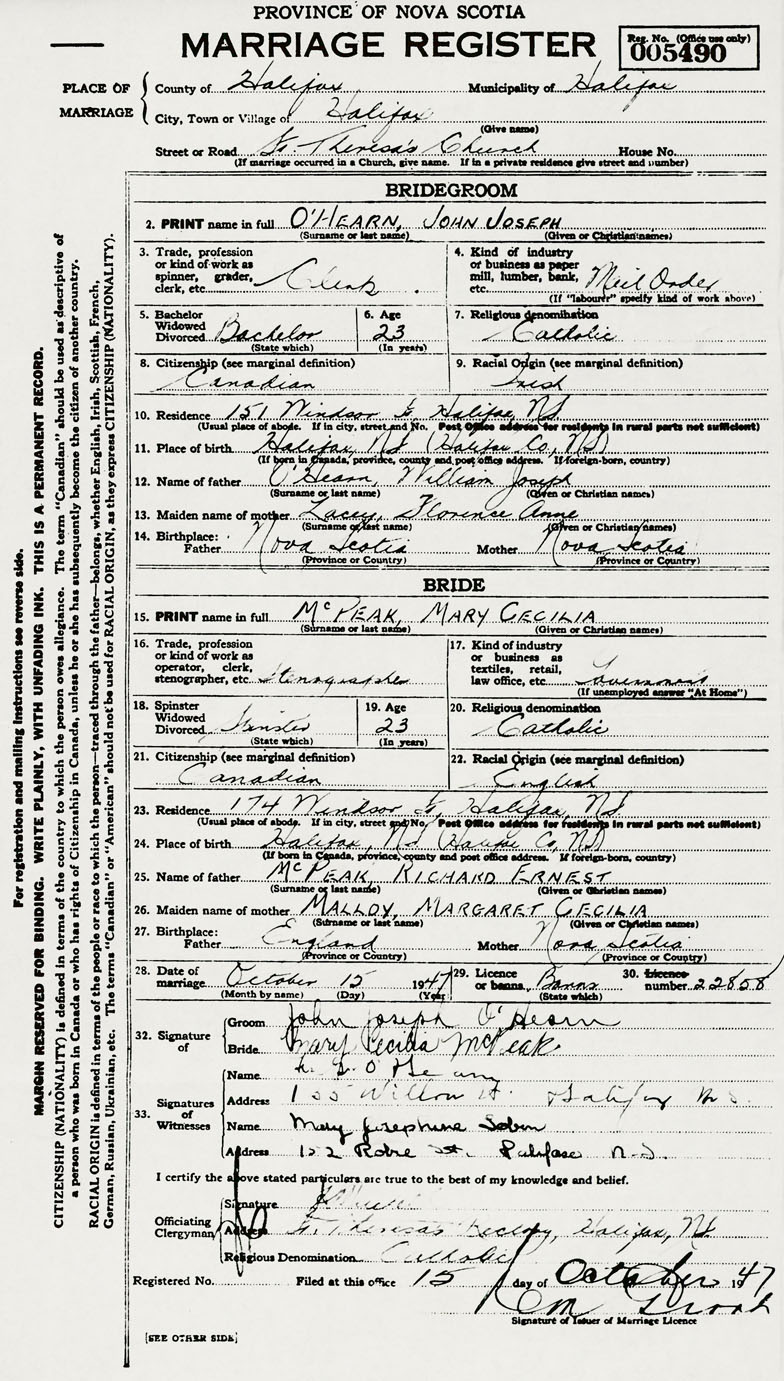 PROVINCE OF NOVA SCOTIA
MARRIAGE REGISTER
Reg. No. (Office use only)
005490
PLACE OF MARRIAGE
County of Halifax Municipality of Halifax
City, Town or Village of Halifax
(Give name)
Street or Road St. Theresa's Church House No.
(If marriage occurred in a Church, give name. If in a private residence give street and number)
BRIDEGROOM
2. PRINT name in full O'HEARN, JOHN JOSEPH
(Surname or last name) (Given or Christian names)
3. Trade, profession or kind of work as spinner, grader, clerk, etc. Clerk
4. Kind of industry or business as paper mill, lumber, bank, etc. Mail Order
(If "labourer" specify kind of work above)
5. Bachelor Widowed Divorced Bachelor
(State which)
6. Age 23
(In years)
7. Religious denomination
Catholic
8. Citizenship (see marginal definition)
Canadian
9. Racial Origin (see marginal definition)
Irish
10. Residence 151 Windsor St, Halifax, NS
(Usual place of abode. If in city, street and No. Post Office address for residents in rural parts not sufficient)
11. Place of birth Halifax, NS (Halifax Co., NS)
(If born in Canada, province, county and post office address. If foreign-born, country)
12. Name of father O'Hearn, William Joseph
(Surname or last name) (Given or Christian names)
13. Maiden name of mother Lacey, Florence Anne
(Surname or last name) (Given or Christian names)
14. Birthplace: Father Nova Scotia Mother Nova Scotia
(Province or Country) (Province or Country)
BRIDE
15. PRINT name in full McPEAK, MARY CECILIA
(Surname or last name) (Given or Christian names)
16. Trade, profession or kind of work as operator, clerk, stenographer, etc. Stenographer
17. Kind of industry or business as textiles, retail, law office, etc.
(If unemployed answer "At Home")
18. Spinster Widowed Divorced Spinster
(State which)
19. Age 23
(In years)
20. Religious denomination
Catholic
21. Citizenship (see marginal definition)
Canadian
22. Racial Origin (see marginal definition)
English
23. Residence 174 Windsor St, Halifax, NS
(Usual place of abode. If in city, street and No. Post Office address for residents in rural parts not sufficient)
24. Place of birth Halifax, NS (Halifax Co, NS)
(If born in Canada, province, county and post office address. If foreign-born, country)
25. Name of father McPEAK, RICHARD ERNEST
(Surname or last name) (Given or Christian names)
26. Maiden name of mother MALLOY, MARGARET CECILIA
(Surname or last name) (Given or Christian names)
27. Birthplace: Father England Mother Nova Scotia
(Province or Country) (Province or Country)
28. Date of marriage October 15 1947
(Month by name) (Day) (Year)
29. Licence or banns Banns
(State which)
30. Licence number 22858
32. Signature of
Groom John Joseph O'Hearn
Bride Mary Cecilia McPeak
33. Signatures of Witnesses
Name O'Hearn
Address St. Halifax N.S.
Name Mary Josephine
Address St. N.S.
I certify the above stated particulars are true to the best of my knowledge and belief.
Officiating Clergyman
Signature
Address St. Theresa's Rectory, Halifax, NS
Religious Denomination Catholic
Registered No. Filed at this office 15 day of October 1947
Signature of Issuer of Marriage Licence
[SEE OTHER SIDE]
For registration and mailing instructions see reverse side.
MARGIN RESERVED FOR BINDING. WRITE PLAINLY, WITH UNFADING INK. THIS IS A PERMANENT RECORD.
CITIZENSHIP (NATIONALITY) is defined in terms of the country to which the person owes allegiance. The term "Canadian" should be used as descriptive of
a person who was born in Canada or who has rights of Citizenship in Canada, unless he or she has subsequently become the citizen of another country.
RACIAL ORIGIN is defined in terms of the people or race to which the person—traced through the father—belongs, whether English, Irish, Scottish, French,
German, Russian, Ukrainian, etc. The terms "Canadian" or "American" should not be used for RACIAL ORIGIN, as they express CITIZENSHIP (NATIONALITY).